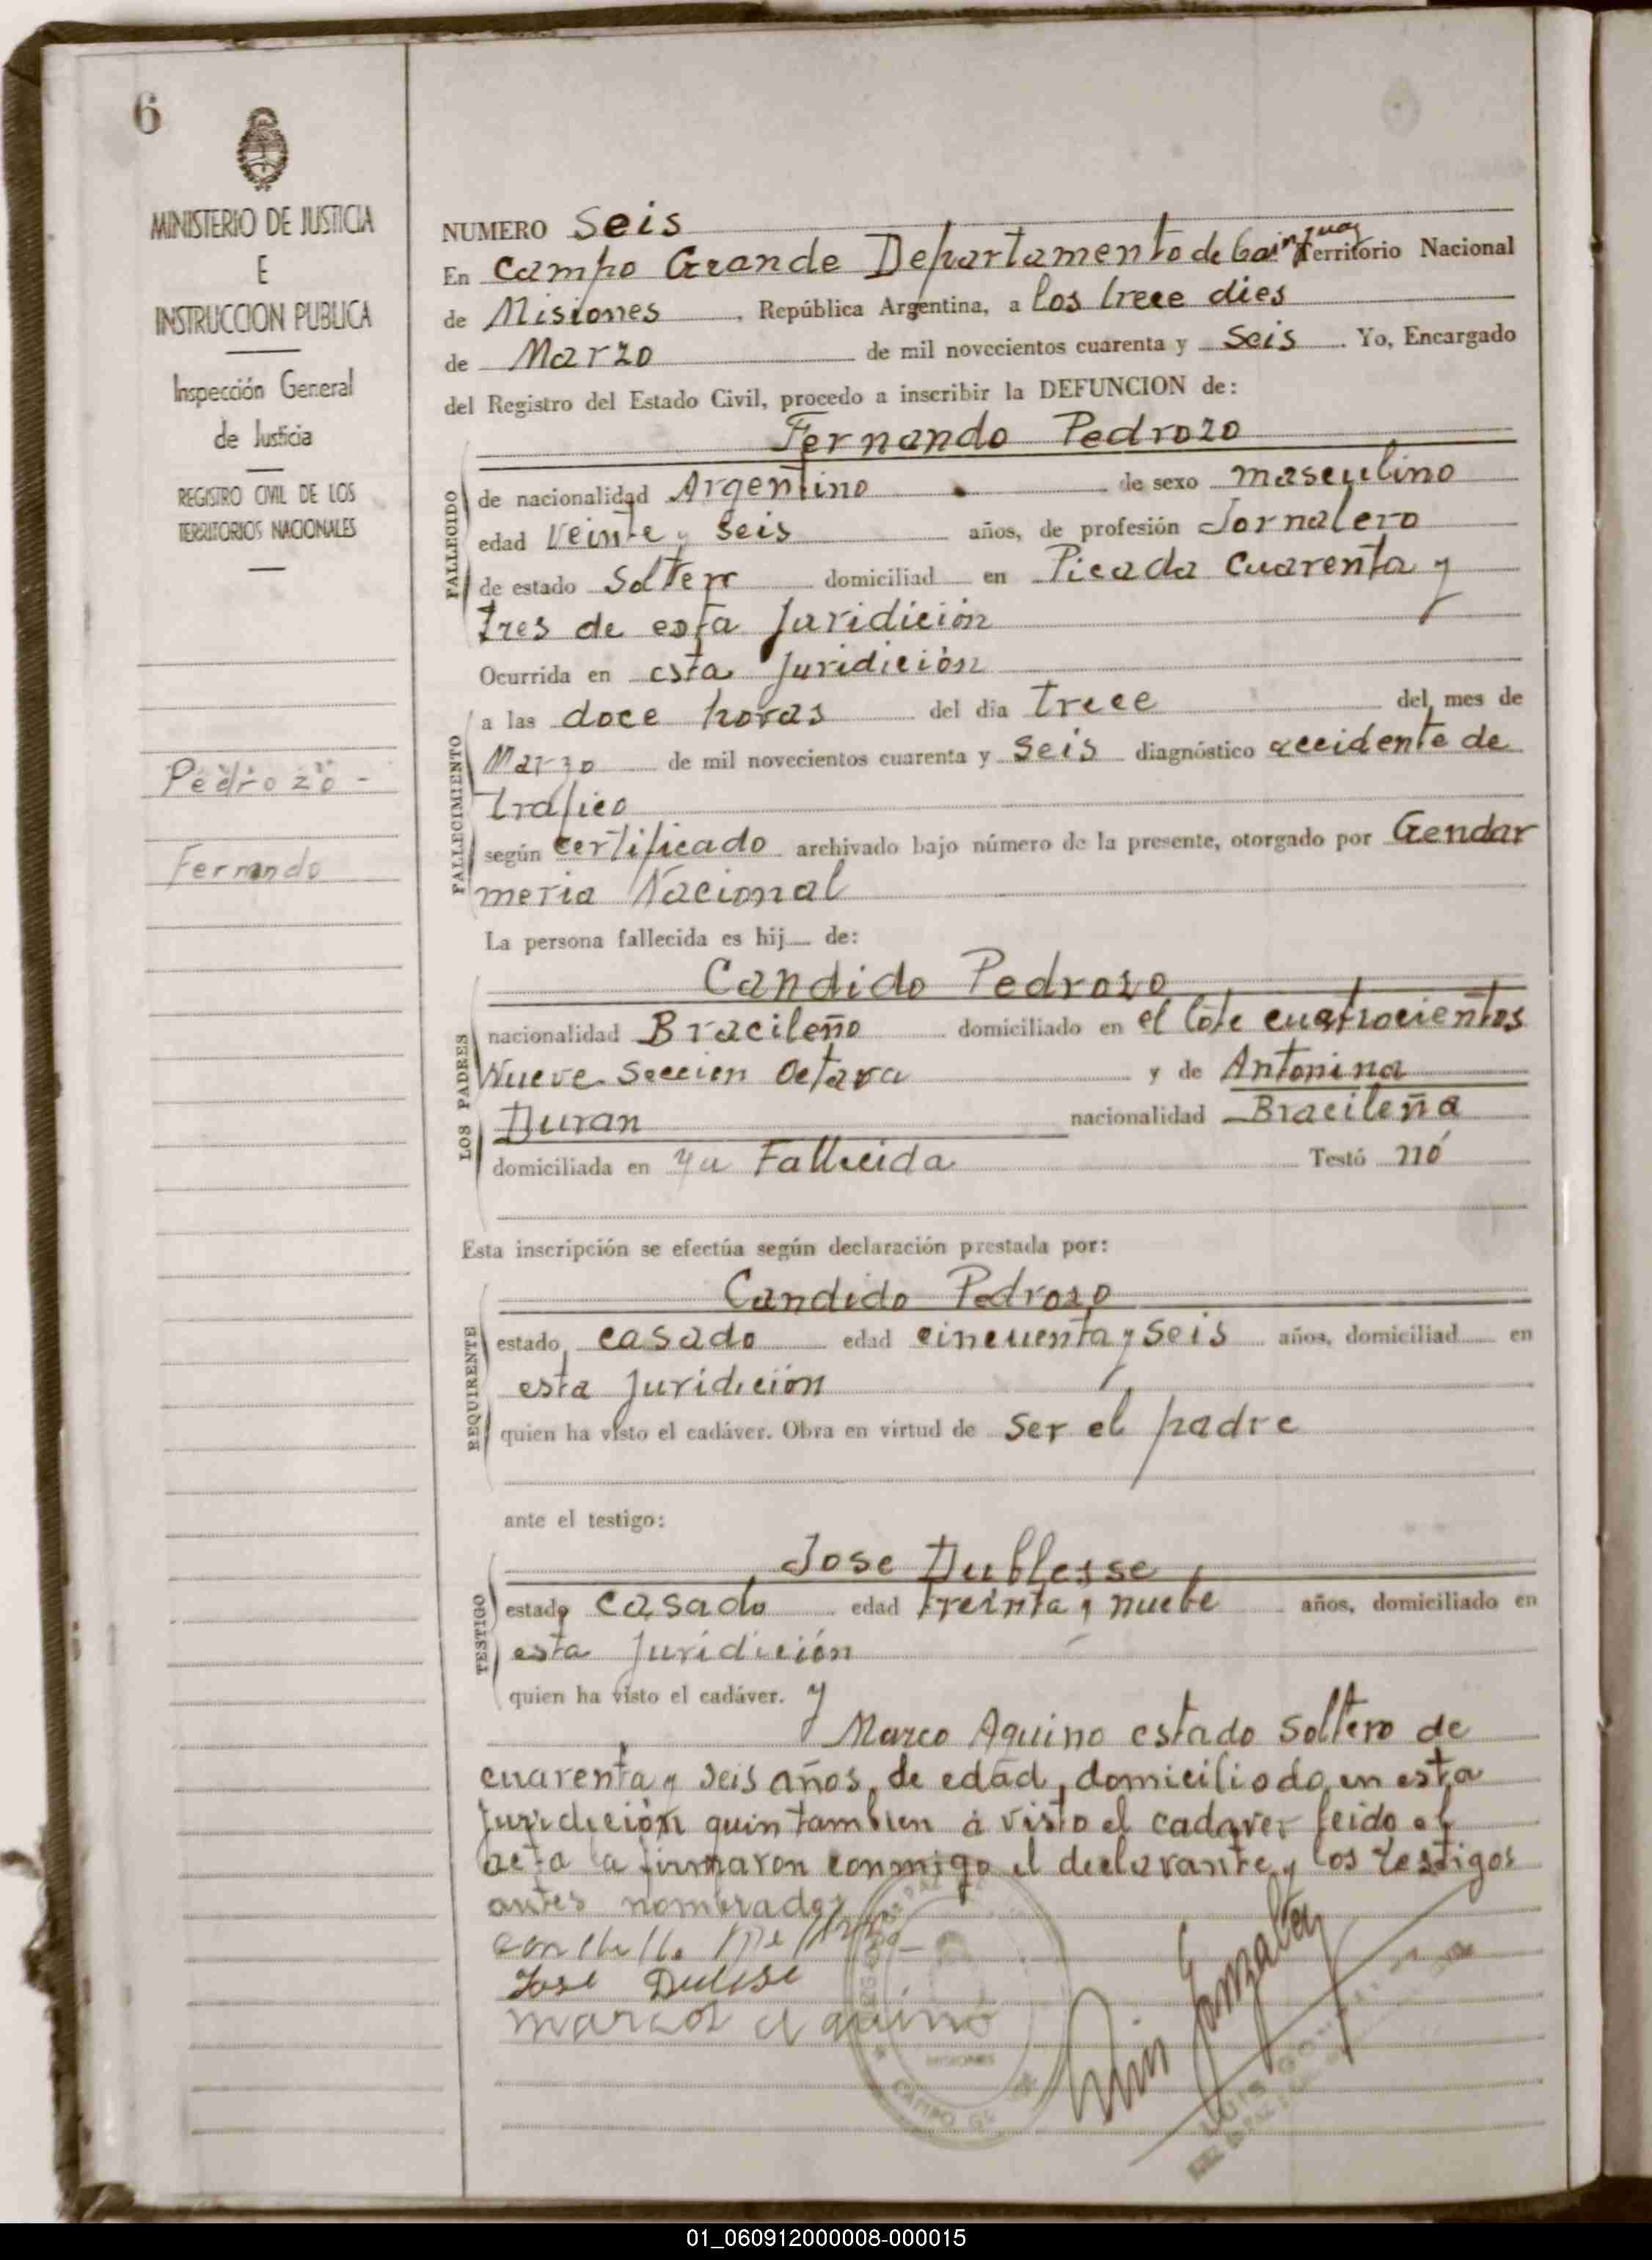 6
MINISTERIO DE JUSTICIA
E
INSTRUCCION PUBLICA
Inspección General
de Justicia
REGISTRO CIVIL DE LOS
TERRITORIOS NACIONALES
Pedrozo -
Fernando
NUMERO Seis
En Campo Grande Departamento de Cainguas Territorio Nacional
de Misiones, República Argentina, a los trece dies
de Marzo de mil novecientos cuarenta y Seis. Yo, Encargado
del Registro del Estado Civil, procedo a inscribir la DEFUNCION de:
Fernando Pedrozo
FALLECIDO
de nacionalidad Argentino de sexo masculino
edad Veinte y Seis años, de profesión Jornalero
de estado Soltero domiciliad en Picada Cuarenta y
tres de esta Juridición
Ocurrida en esta Juridición
FALLECIMIENTO
a las doce horas del día trece del mes de
Marzo de mil novecientos cuarenta y Seis diagnóstico accidente de
trafico
según Certificado archivado bajo número de la presente, otorgado por Gendar
meria Nacional
La persona fallecida es hij de:
LOS PADRES
Candido Pedrozo
nacionalidad Bracileño domiciliado en el Lote cuatrocientos
Nueve Seccion Octava y de Antonina
Duran nacionalidad Bracileña
domiciliada en ya Fallecida Testó nó
Esta inscripción se efectúa según declaración prestada por:
REQUIRENTE
Candido Pedrozo
estado casado edad cincuenta y Seis años, domiciliad en
esta Juridición
quien ha visto el cadáver. Obra en virtud de Ser el padre
ante el testigo:
TESTIGO
Jose Dublesse
estado Casado edad treinta y nuebe años, domiciliado en
esta Juridición
quien ha visto el cadáver. y
Marco Aquino estado Soltero de
cuarenta y seis años, de edad, domiciliodo en esta
Juridicción quin tambien á visto el cadaver leido el
acta la firmaron conmigo el declarante y los testigos
antes nombrados
José
marcos aquino
MISIONES
CAMPO GDE
Luis Gonzalez
LUIS GONZALEZ
01_060912000008-000015